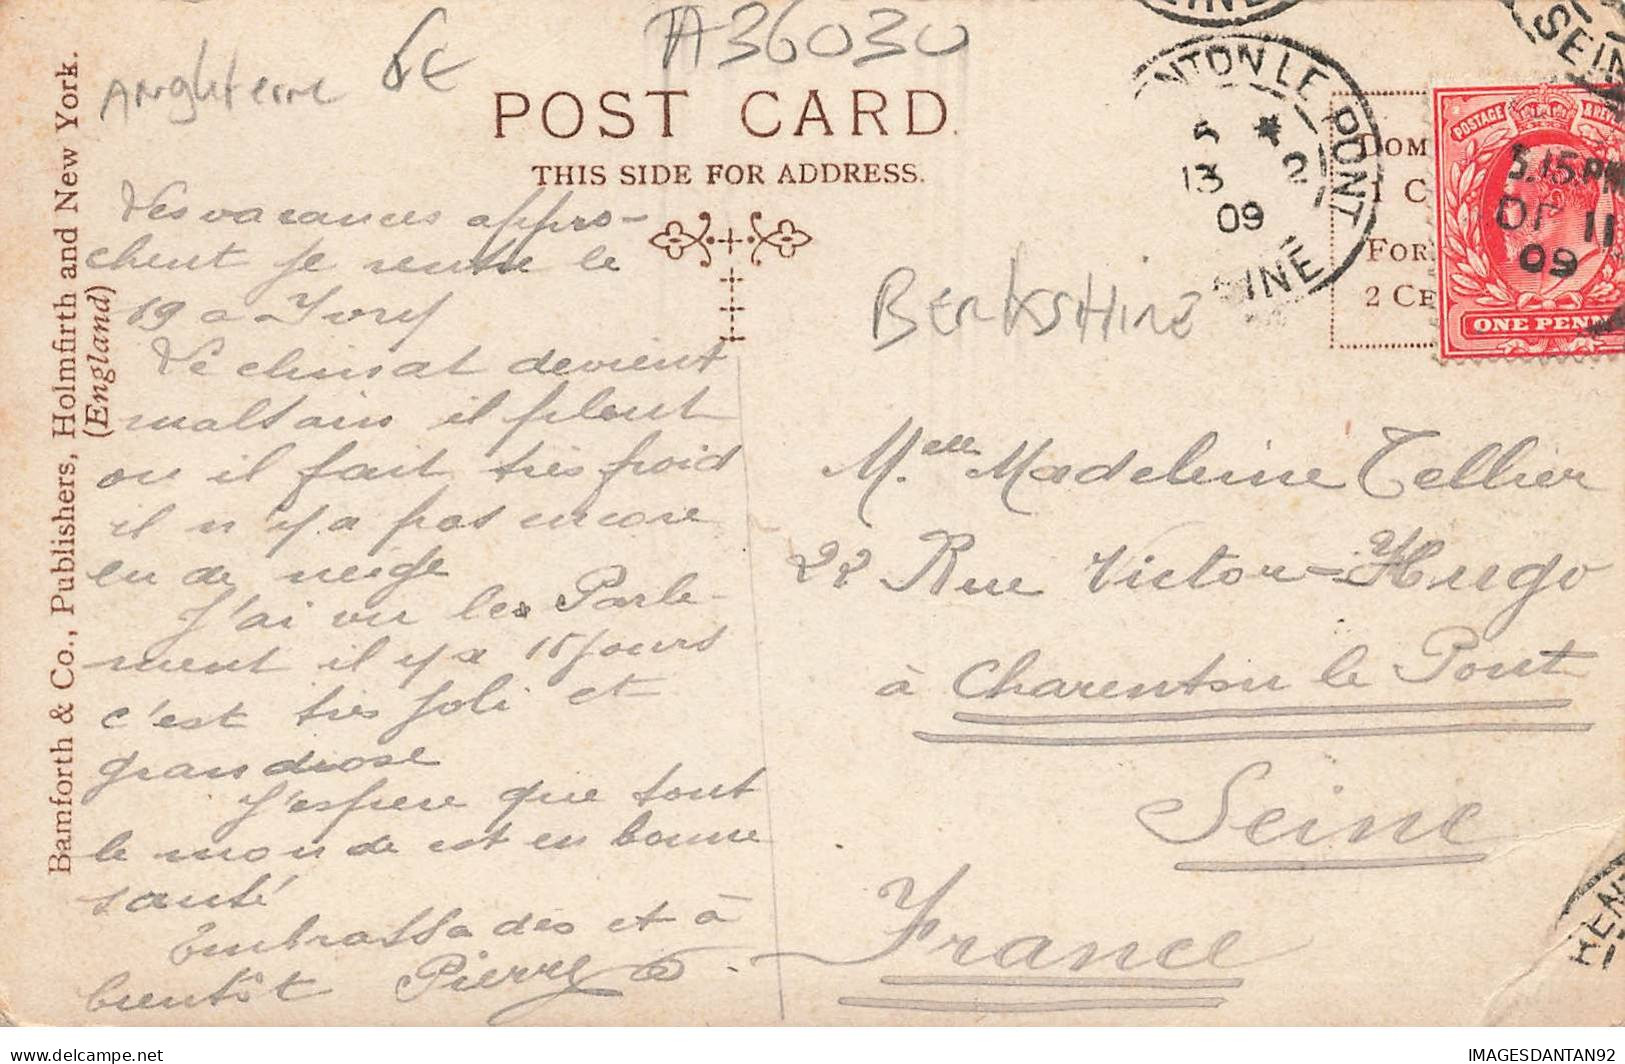 Angleterre 6€
A36030
POST CARD.
THIS SIDE FOR ADDRESS.
Bamforth & Co., Publishers, Holmfirth and New York.
(England)
Les vacances appro-
chent je rentre le
19 a Ivry
Le climat devient
malsain il pleut
ou il fait très froid
il n'y a pas encore
eu de neige
J'ai vu le Parle-
ment il y a 15 jours
c'est très joli et
grandiose
J'espere que tout
le monde est en bonne
santé
Embrassades et à
bientôt Pierre
NTON LE PONT
13
2
09
INE
SEIN
COM
1 C
FOR
2 CE
POSTAGE
3.15 PM
11
09
ONE PENN
BERKSHIRE
Melle Madeleine Tellier
22 Rue Victor-Hugo
à Charenton le Pont
Seine
France
HENT
delcampe.net
IMAGESDANTAN92